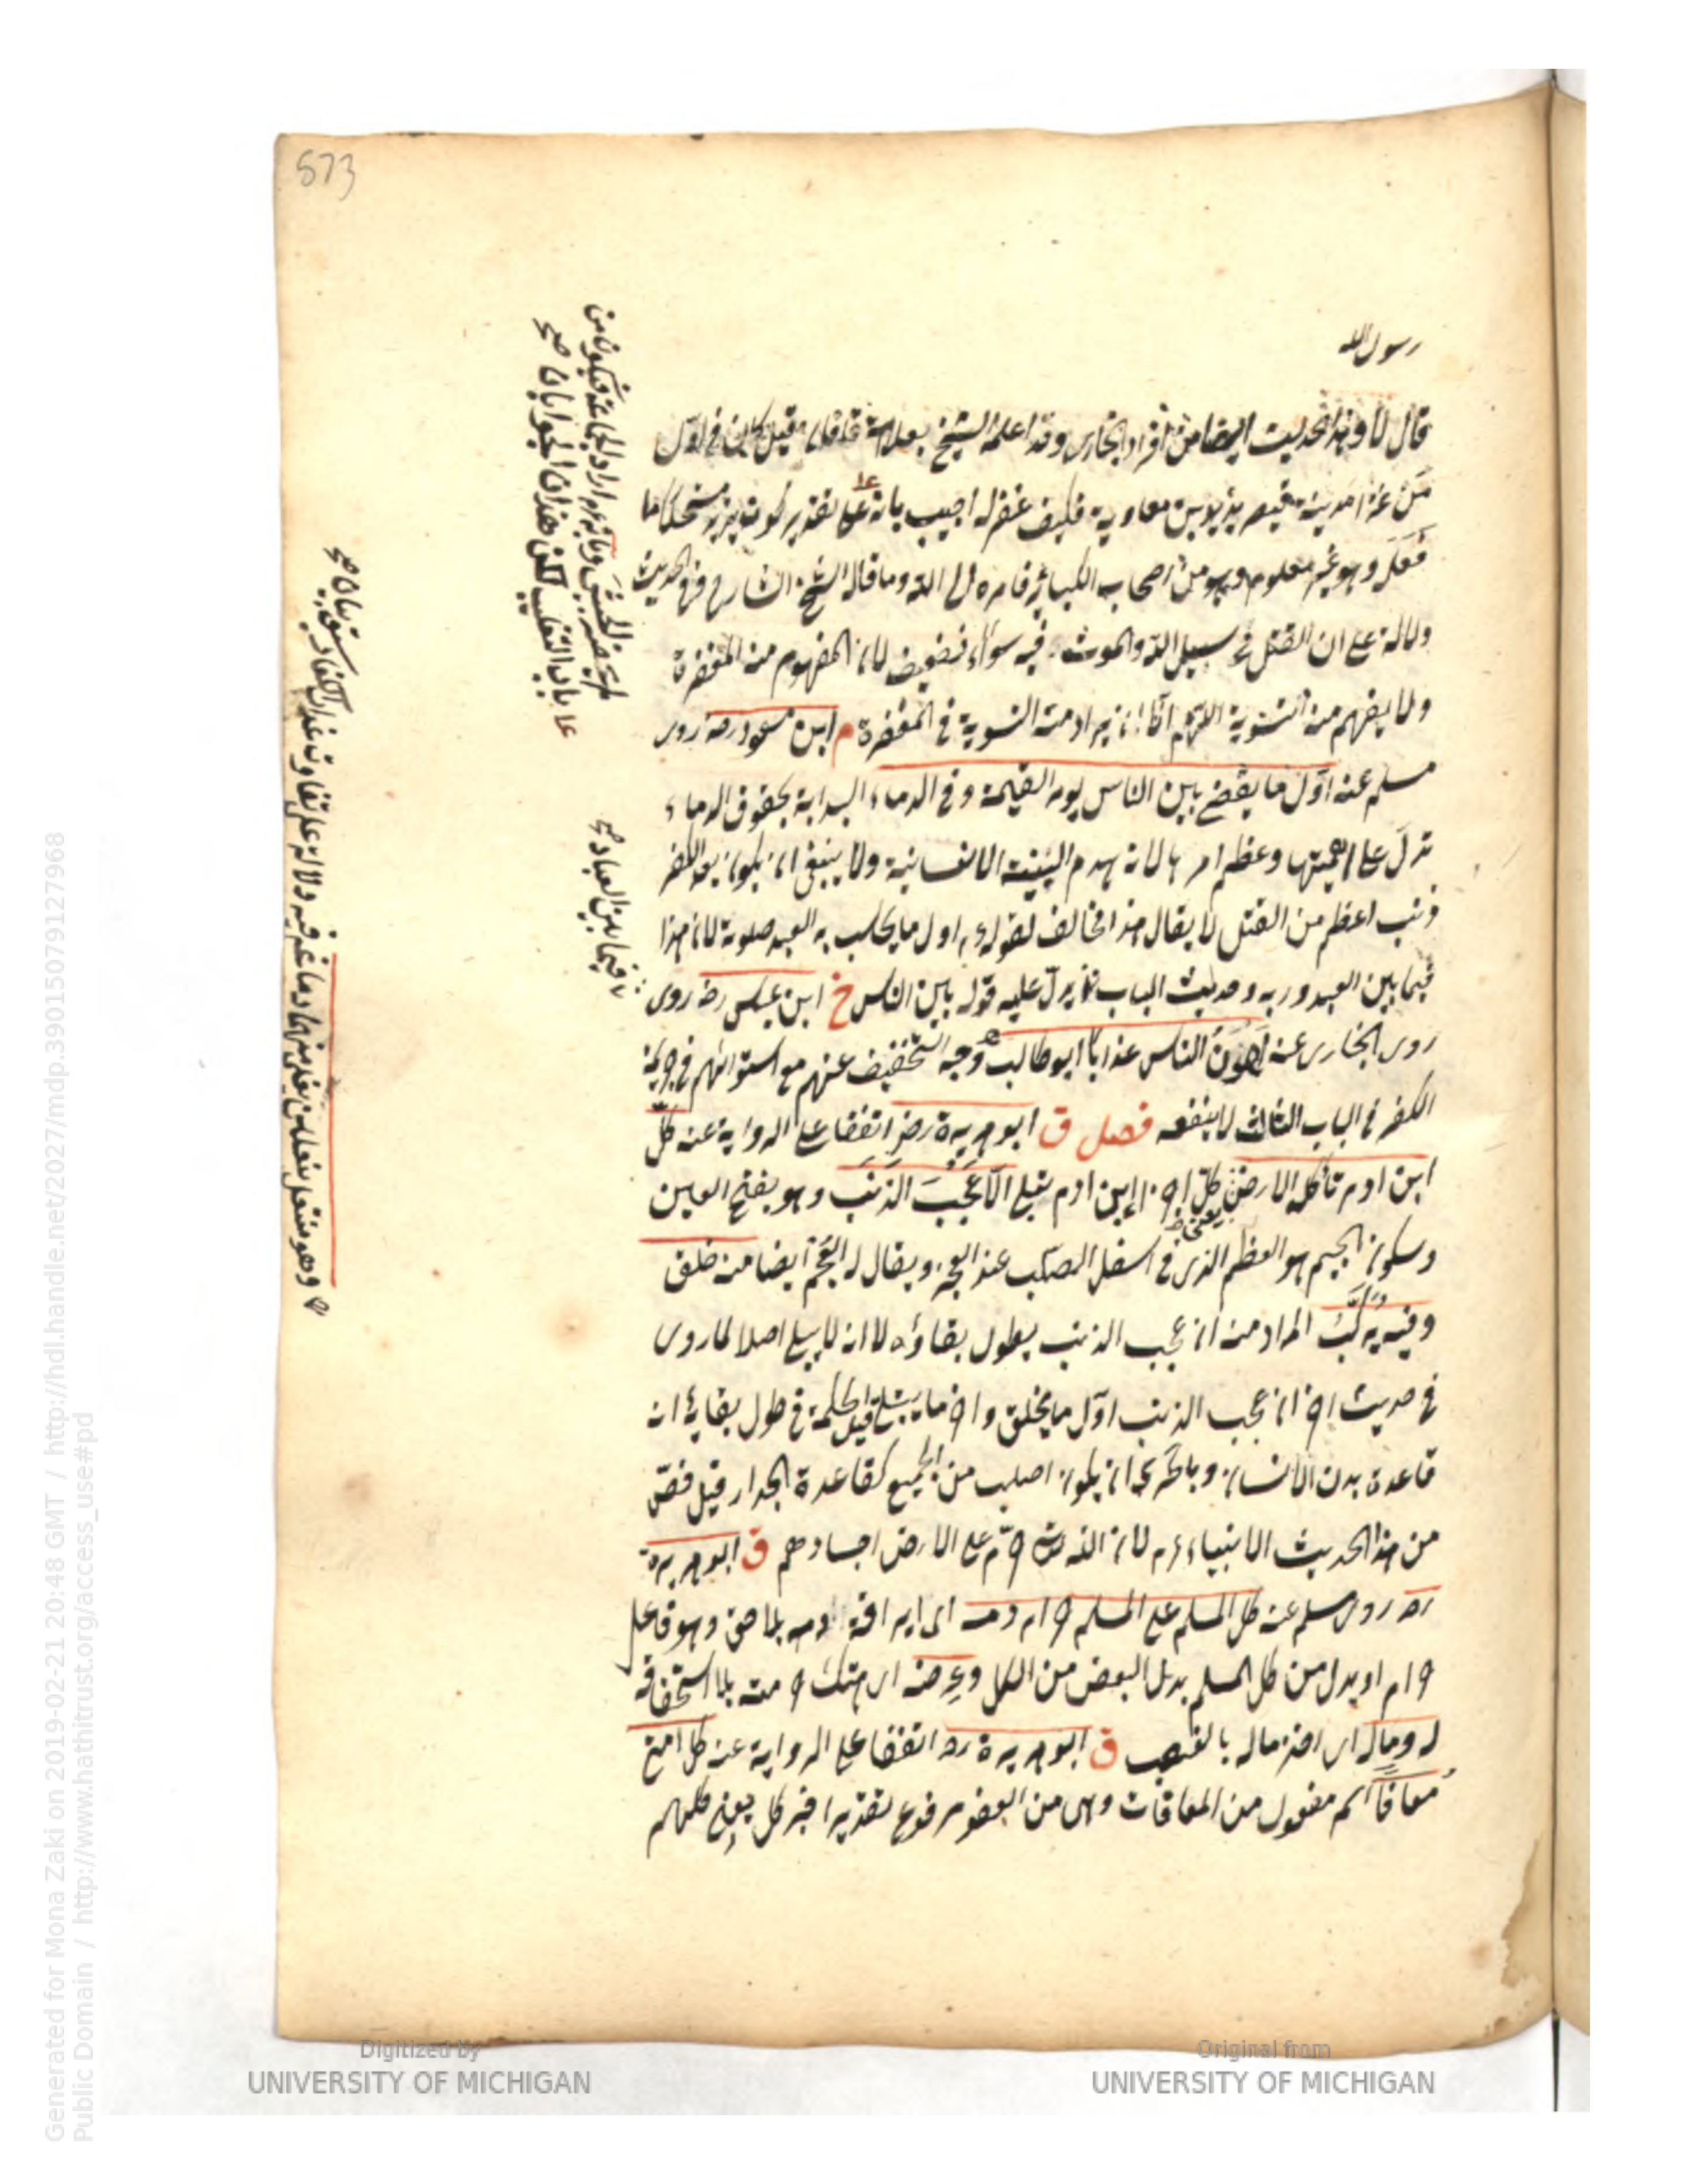 573
رسول الله
قال لا وهذا الحديث ايضا من افراد البخارى وقد اعلمه الشيخ بعلامة قيل كان فى اول
من غزا مدينة قيصر يزيد بن معاوية فكيف غفر له اجيب بانه على تقدير كون يزيد مستحلا لما
فعل وهو غير معلوم وهو من اصحاب الكبائر فامره الى الله وما قاله الشيخ الشارح فى الحديث
دلالة على ان القتل فى سبيل الله والموت فيه سواء فضعيف لان المفهوم منه المغفرة
ولا يفهم منه التسوية اللهم الا ان يراد منه التسوية فى المغفرة م ابن مسعود رضه روى
مسلم عنه اول ما يقضى بين الناس يوم القيمة وفى الدماء البداية بحقوق الدماء
تدل على اهميتها وعظم امرها لانه يهدم البنية الانسانية ولا ينبغى ان يكون بعد الكفر
ذنب اعظم من القتل لا يقال هذا مخالف لقوله ء م اول ما يحاسب به العبد صلوته لان هذا
فيما بين العبد وربه وحديث الباب يدل عليه قوله بين الناس خ ابن عباس رضه روى
روى البخارى عنه اهون الناس عذابا ابو طالب وجه التخفيف عنهم مع استوائهم فى جريمة
الكفر فى الباب الثالث لا ينفعه فصل ق ابو هريرة رضه اتفقا على الرواية عنه كل
ابن ادم تأكله الارض يعنى كل اجزاء ابن ادم تبلى الا عجب الذنب وهو بفتح العين
وسكون الجيم هو العظم الذى فى اسفل الصلب عند العجز ويقال له العجم ايضا منه خلق
وفيه يركب المراد منه ان عجب الذنب يطول بقاؤه لا انه لا يبلى اصلا لما روى
فى حديث اخر ان عجب الذنب اول ما يخلق واخر ما يبلى قيل الحكمة فى طول بقائه انه
قاعدة بدن الانسان وبالحرى ان يكون اصلب من الجميع كقاعدة الجدار قيل خص
من هذا الحديث الانبياء ء م لان الله تع حرم على الارض اجسادهم ق ابو هريرة
رضه روى مسلم عنه كل المسلم على المسلم حرام دمه اى اراقة دمه بلا حق وهو فاعل
حرام او بدل من كل المسلم بدل البعض من الكل وعرضه اى هتك حرمته بلا استحقاقه
له وماله اى اخذ ماله بالغصب ق ابو هريرة رضه اتفقا على الرواية عنه كل امتى
معافا اسم مفعول من المعافات وهى من العفو مرفوع تقديرا خبر كل يعنى كلهم
على باب التغليب لكن هذان الجوابان صح
فيما بين العباد صح
وهو منتعل بنعلين يغلى منهما دماغه فيه دلالة على تفاوت عذاب الكفار سبق بيانه صح